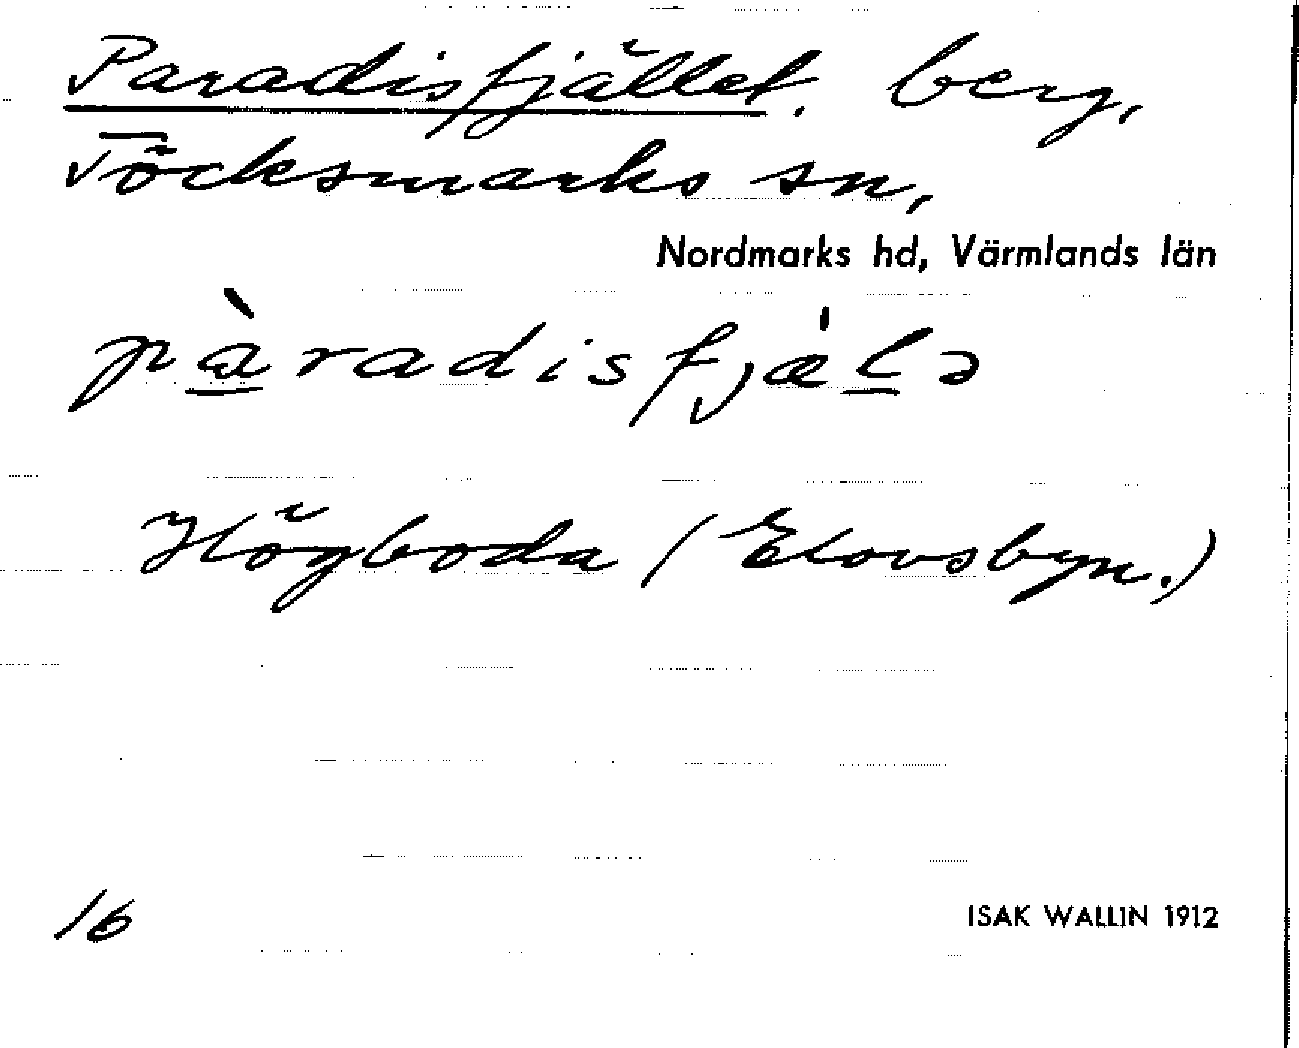 Paradisfjället, berg,
Töcksmarks sn,
Nordmarks hd, Värmlands län
pàradisfjælə
Högboda (Elovsbyn.)
16
ISAK WALLIN 1912